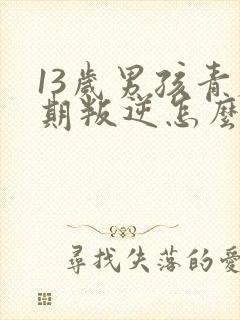 13歲男孩青
期叛逆怎麼
尋找失落的愛